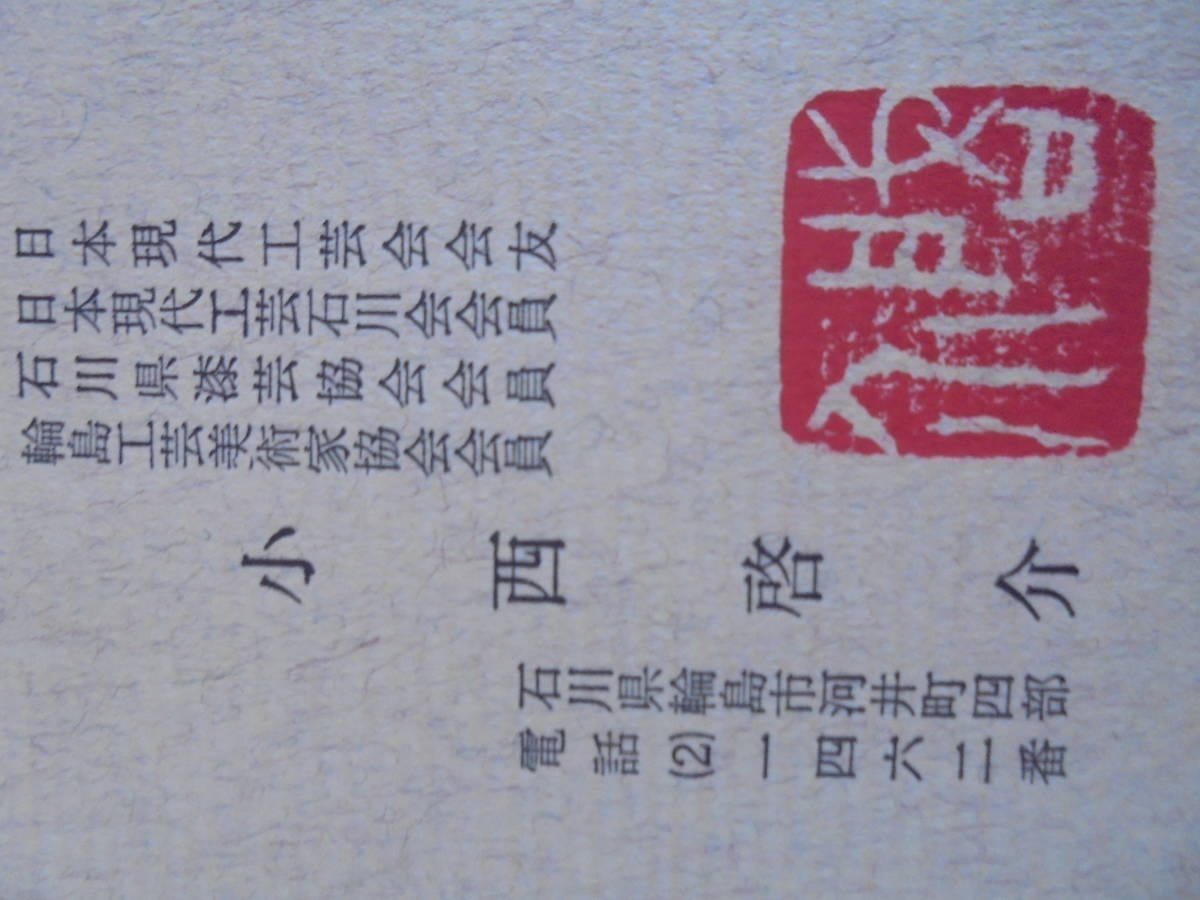 日本現代工芸会会友
日本現代工芸石川会会員
石川県漆芸協会会員
輪島工芸美術家協会会員
小西啓介
石川県輪島市河井町四部
電話(2)一四六二番